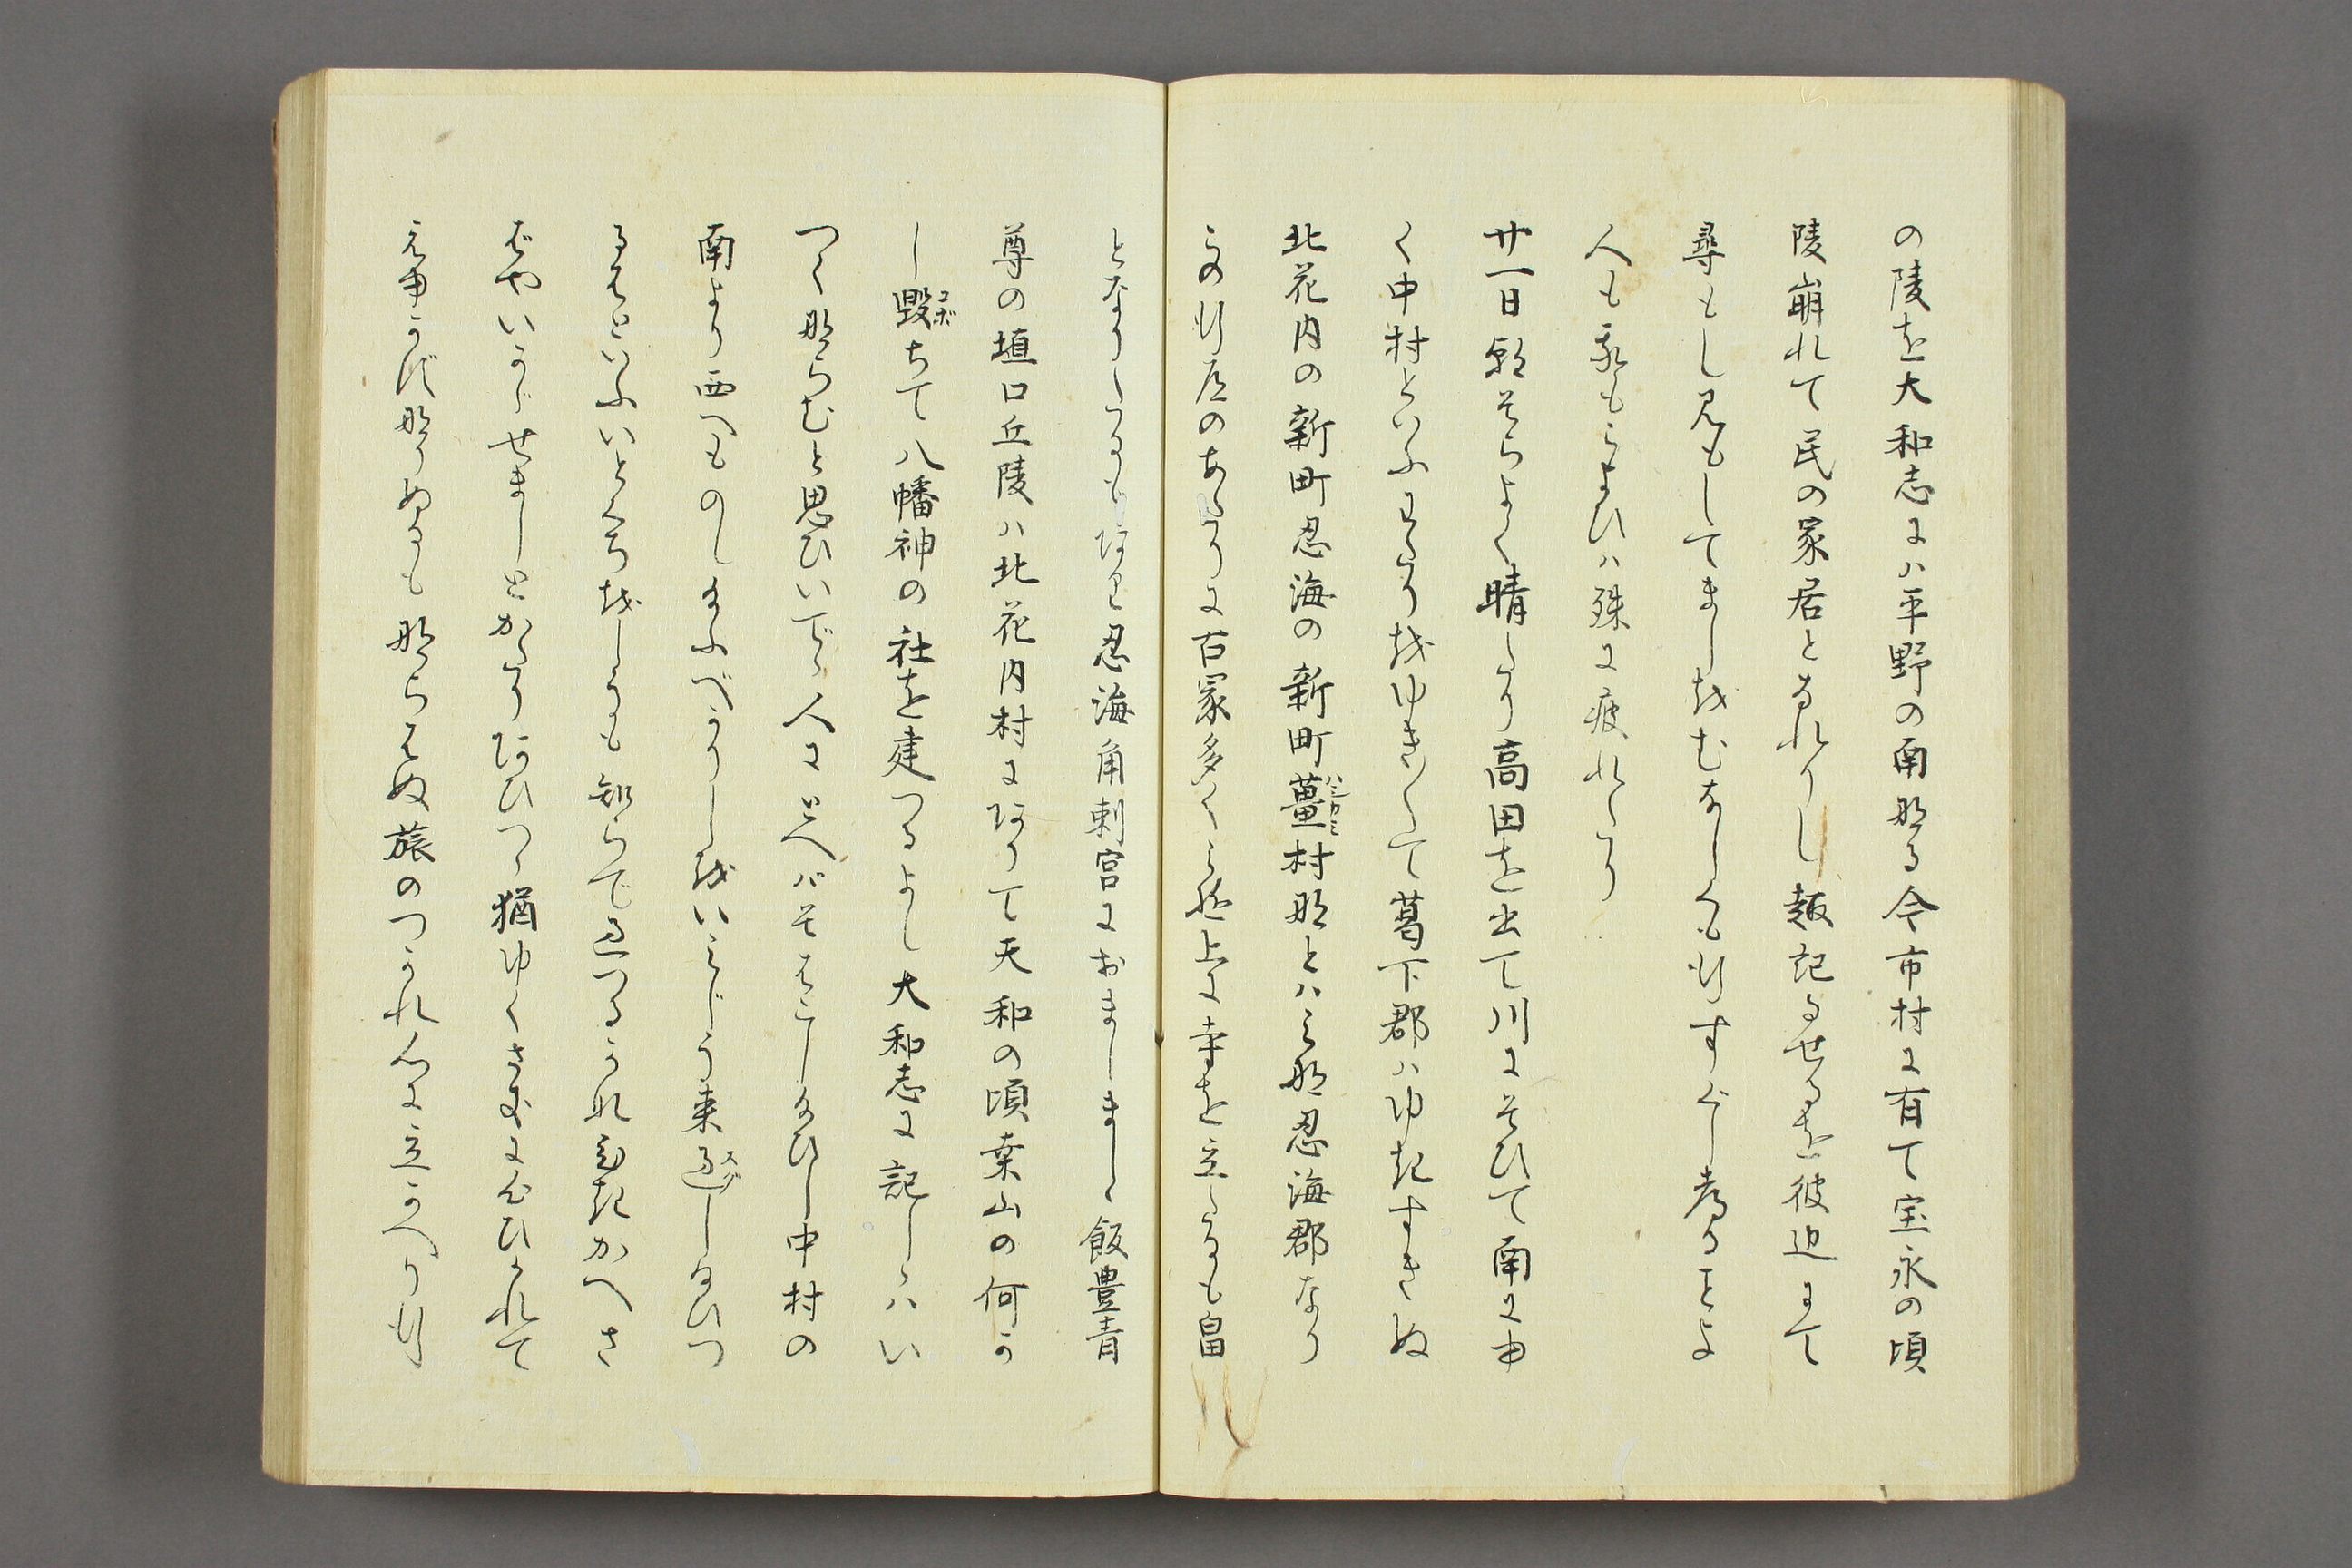 の陵を大和志に八平野の南なる今市村に有て宝永の頃
陵崩れて民の家居となれりし趣記るせるを彼辺にて
尋もし見もしてましをむなしくも行すぐし考ることよ
人も我もこよひハ殊に疲れたり
廿一日朝そらよく晴たり高田を出て川にそひて南に由
く中村といふわたりをゆき〳〵て葛下郡ハゆきすきぬ
北花内の新町忍海の新町薑村なとハこな忍海郡なり
この行道のあたりに古冢多くこは上に寺を立たるも畠
となりたるもあり忍海角刺宮におましましゝ飯豊青
尊の埴口丘陵ハ北花内村にありて天和の頃桒山の何か
し毀ちて八幡神の社を建つるよし大和志に記しゝハい
つくならむと思ひいでゝ人にとへバそはこしなひし中村の
南より西へものしたまふべかりしをいみじう来過しなひつ
るはといふいとくちをしうも知らで過つるかれ引きかへさ
ばやいかゞせましとかたりあひつゝ猶ゆくさきに心ひかれて
え由かずなりぬるもならはぬ旅のつかれ心に立かへり行